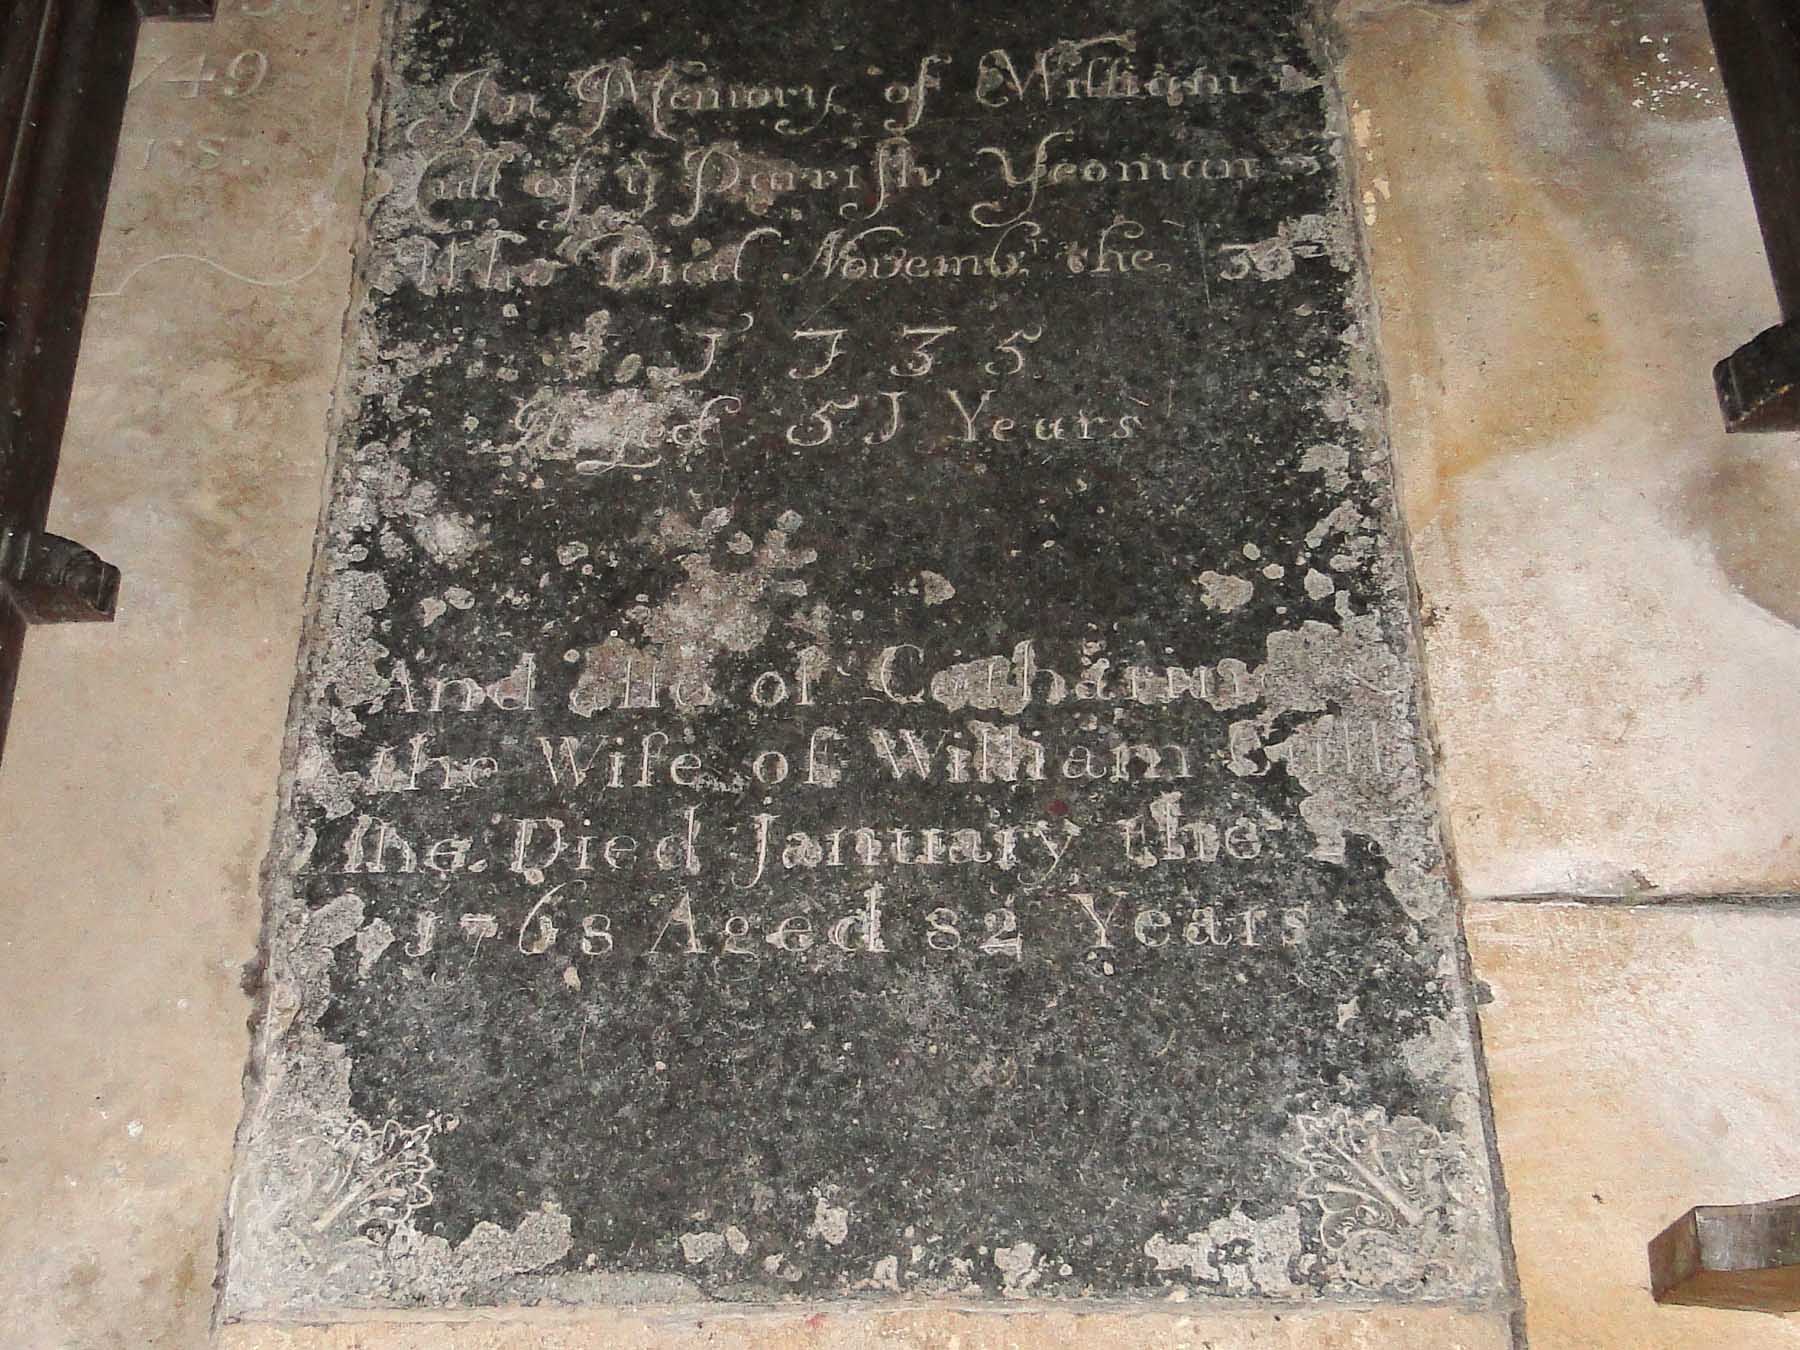 49
rs.
In Memory of William
of yͤ Parish Yeoman
Who Died Novembʳ: the 30ᵗʰ
1735
Aged 51 Years
And allso of Catharine
the Wife of William
She Died January the
1768 Aged 82 Years